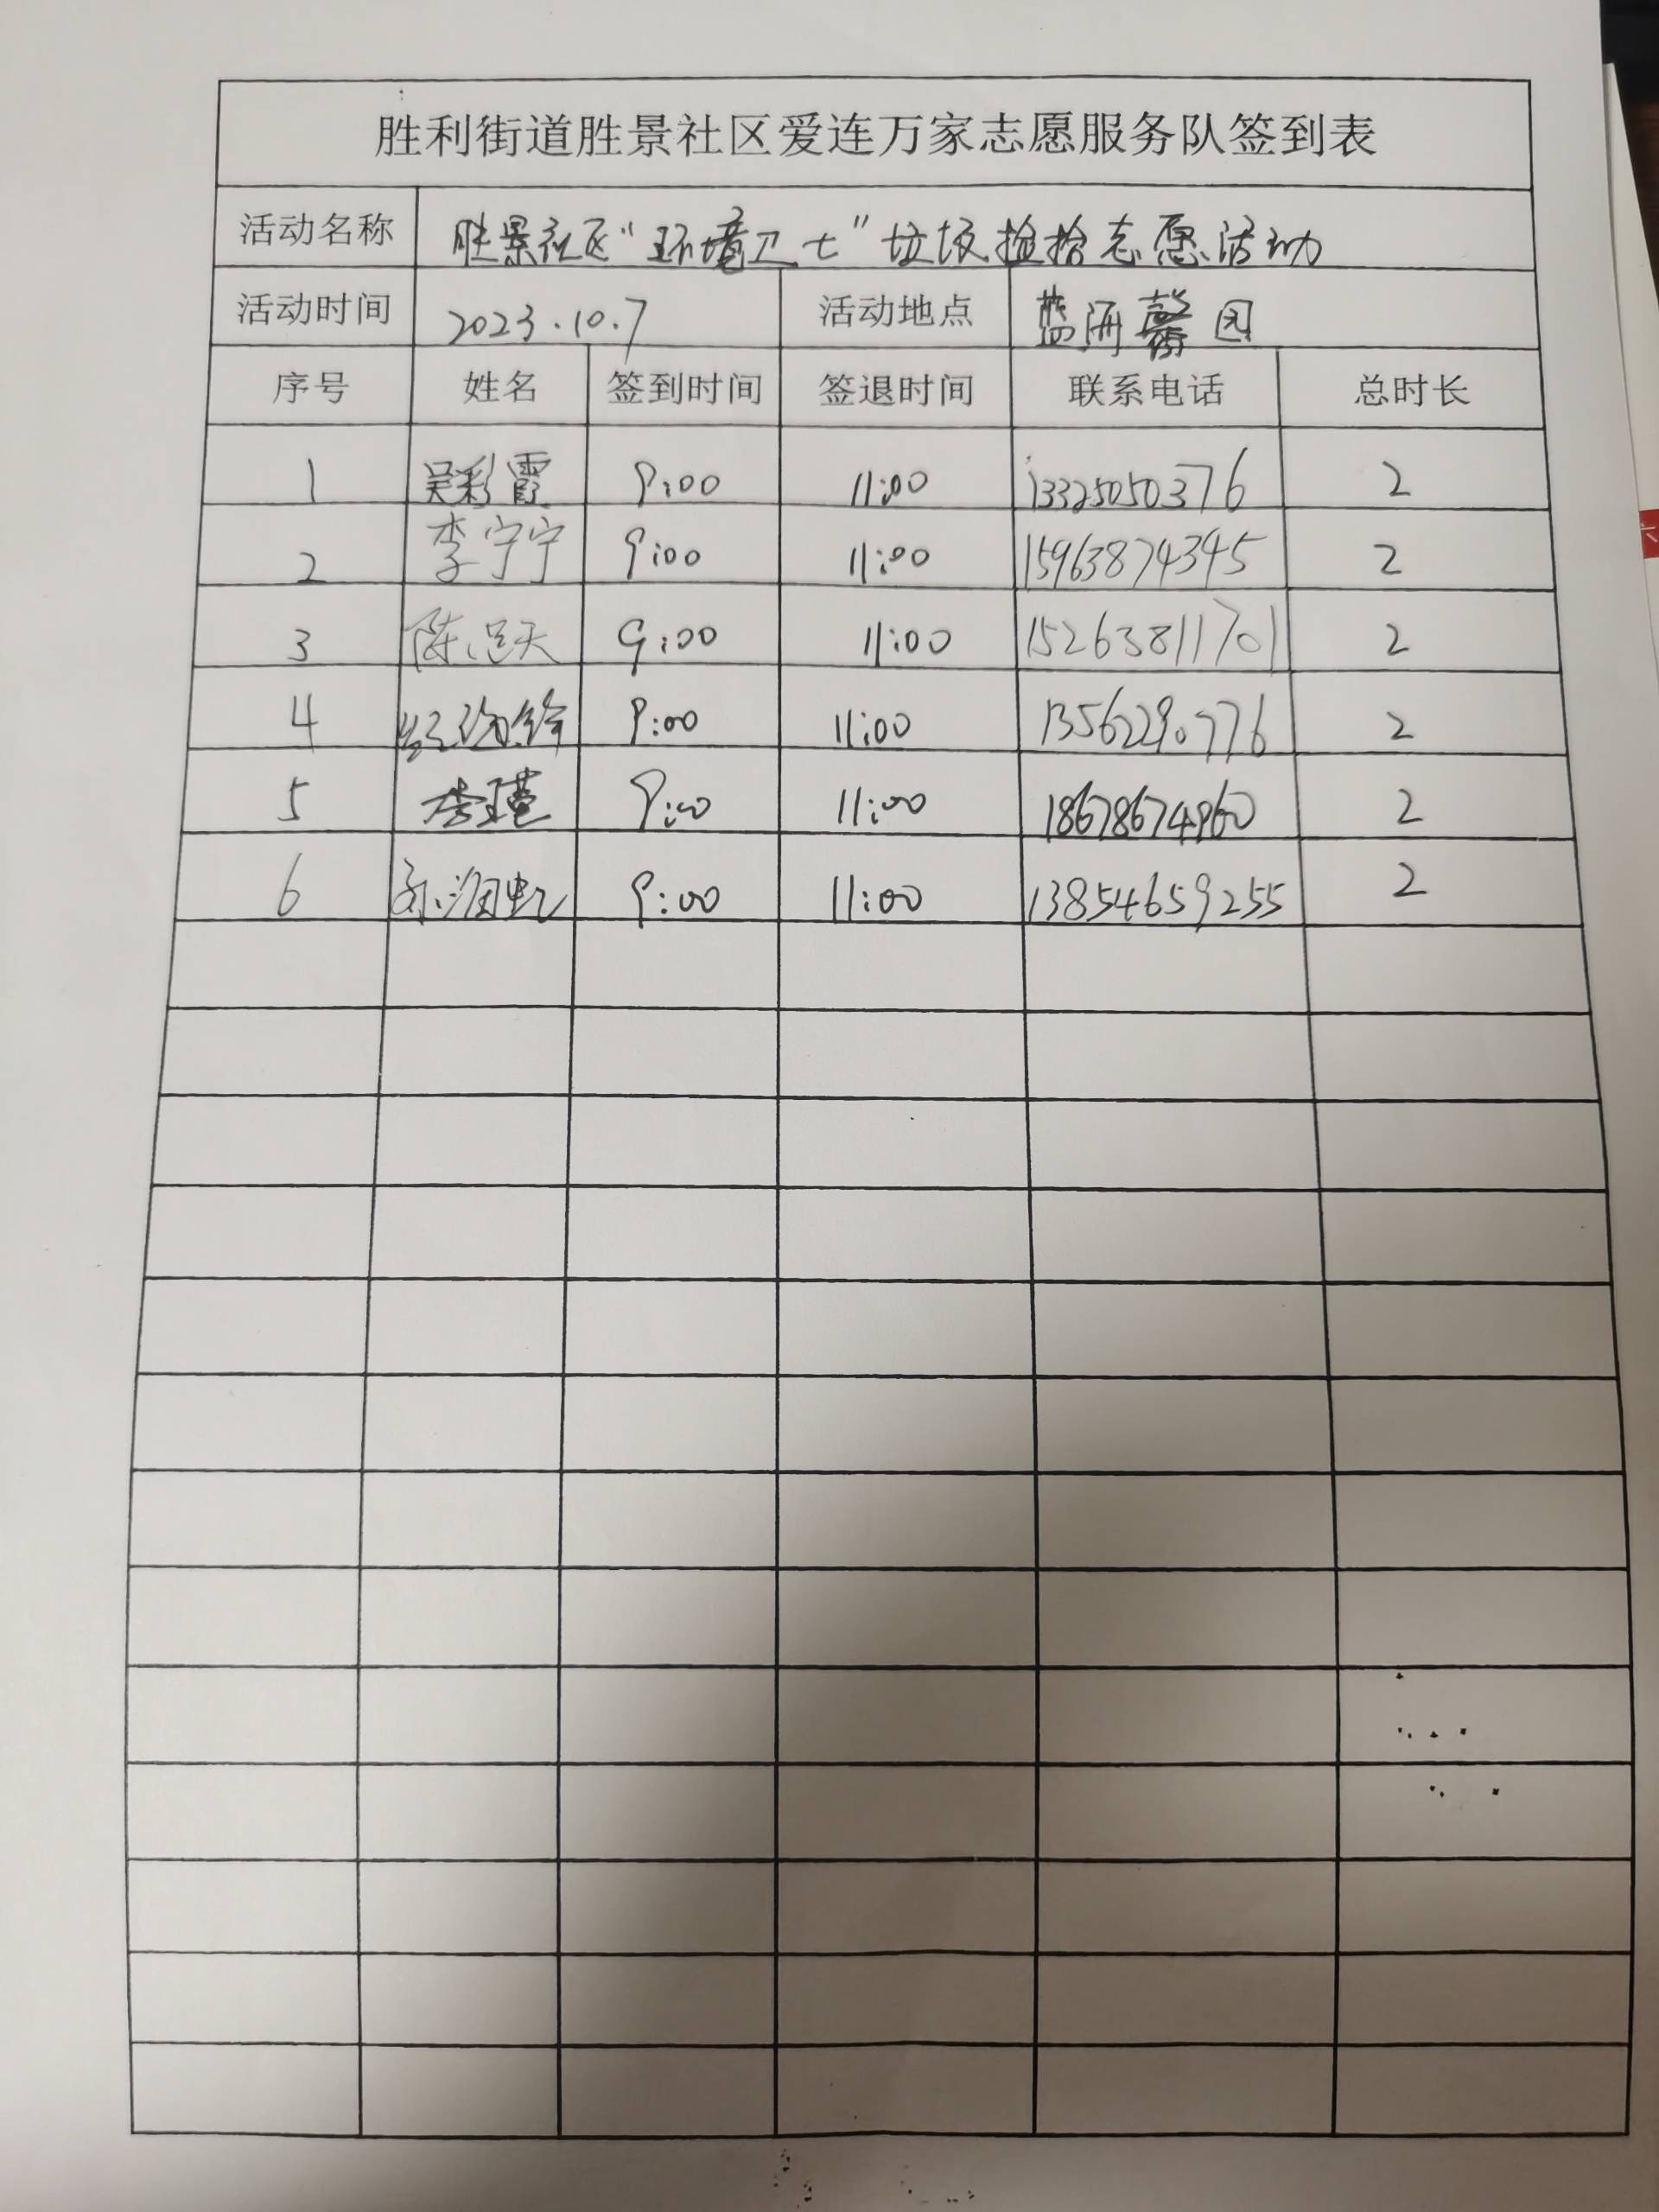 胜利街道胜景社区爱连万家志愿服务队签到表
活动名称 胜景社区“环境卫士”垃圾捡拾志愿活动
活动时间 2023.10.7 活动地点 蓝海馨园
序号 姓名 签到时间 签退时间 联系电话 总时长
1 吴彩霞 9:00 11:00 13325050376 2
2 李宁宁 9:00 11:00 15963874345 2
3 9:00 11:00 15263811701 2
4 9:00 11:00 13562290776 2
5 李瑾 9:00 11:00 18678674960 2
6 9:00 11:00 13854659255 2